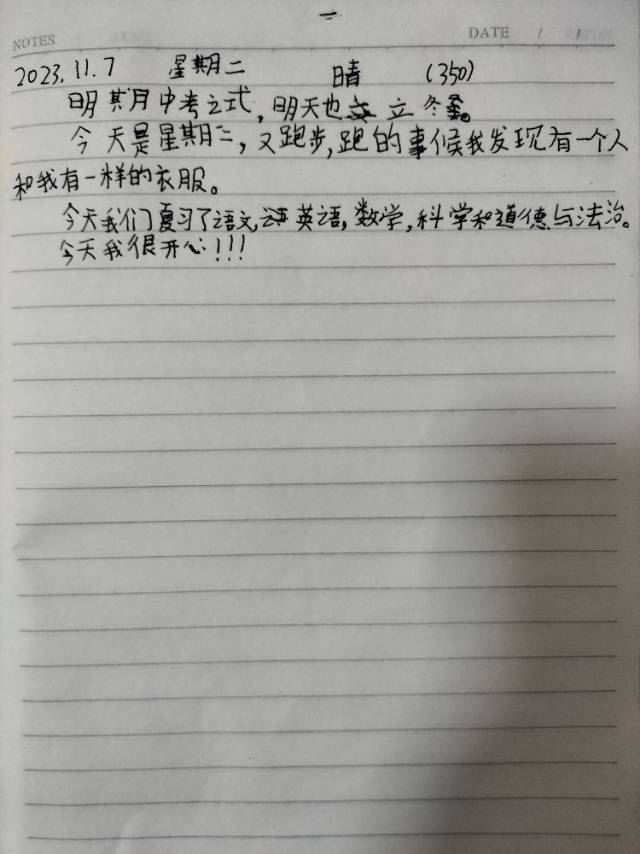 一
NOTES DATE / /
2023.11.7 星期二 晴 (350)
明其月中考之式,明天也立冬。
今天是星期二,又跑步,跑的事候我发现有一个人
和我有一样的衣服。
今天我们夏习了语文,英语,数学,科学和道德与法治。
今天我很开心!!!